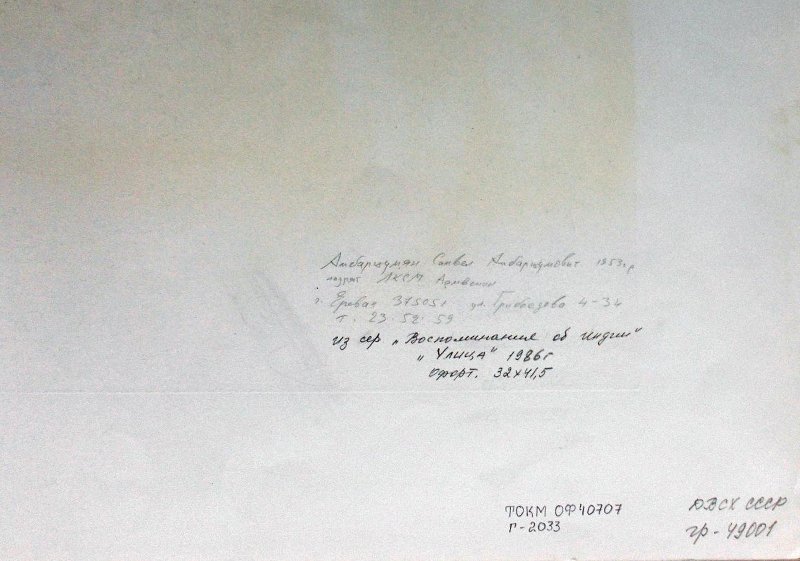 Амбарцумян Самвел Амбарцумович 1953г.р
лауреат ЛКСМ Армении
г. Ереван 375051 ул. Грибоедова 4-34
т. 23-52-59
из сер „Воспоминания об Индии"
„Улица" 1986г
офорт. 32×41,5
ТОКМ ОФ40707
Г-2033
ДВСХ СССР
гр-49001